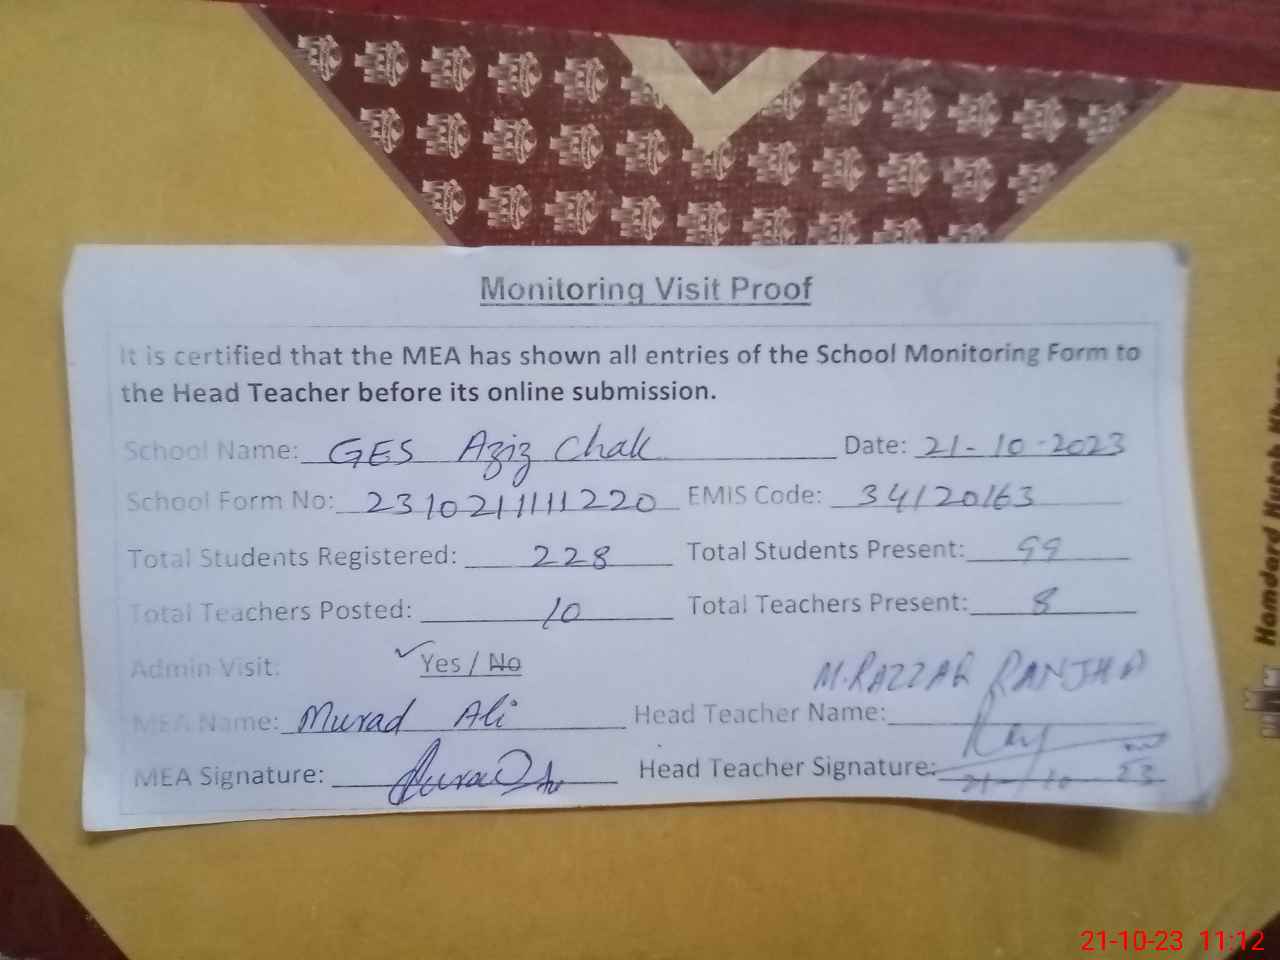 Monitoring Visit Proof
It is certified that the MEA has shown all entries of the School Monitoring Form to
the Head Teacher before its online submission.
School Name: GES Aziz Chak Date: 21-10-2023
School Form No: 2310211111220 EMIS Code: 34120163
Total Students Registered: 228 Total Students Present: 99
Total Teachers Posted: 10 Total Teachers Present: 8
Admin Visit: Yes / No
M.RAZZAK RANJHA
MEA Name: Murad Ali Head Teacher Name:
MEA Signature: Head Teacher Signature:
21-10-23 11:12